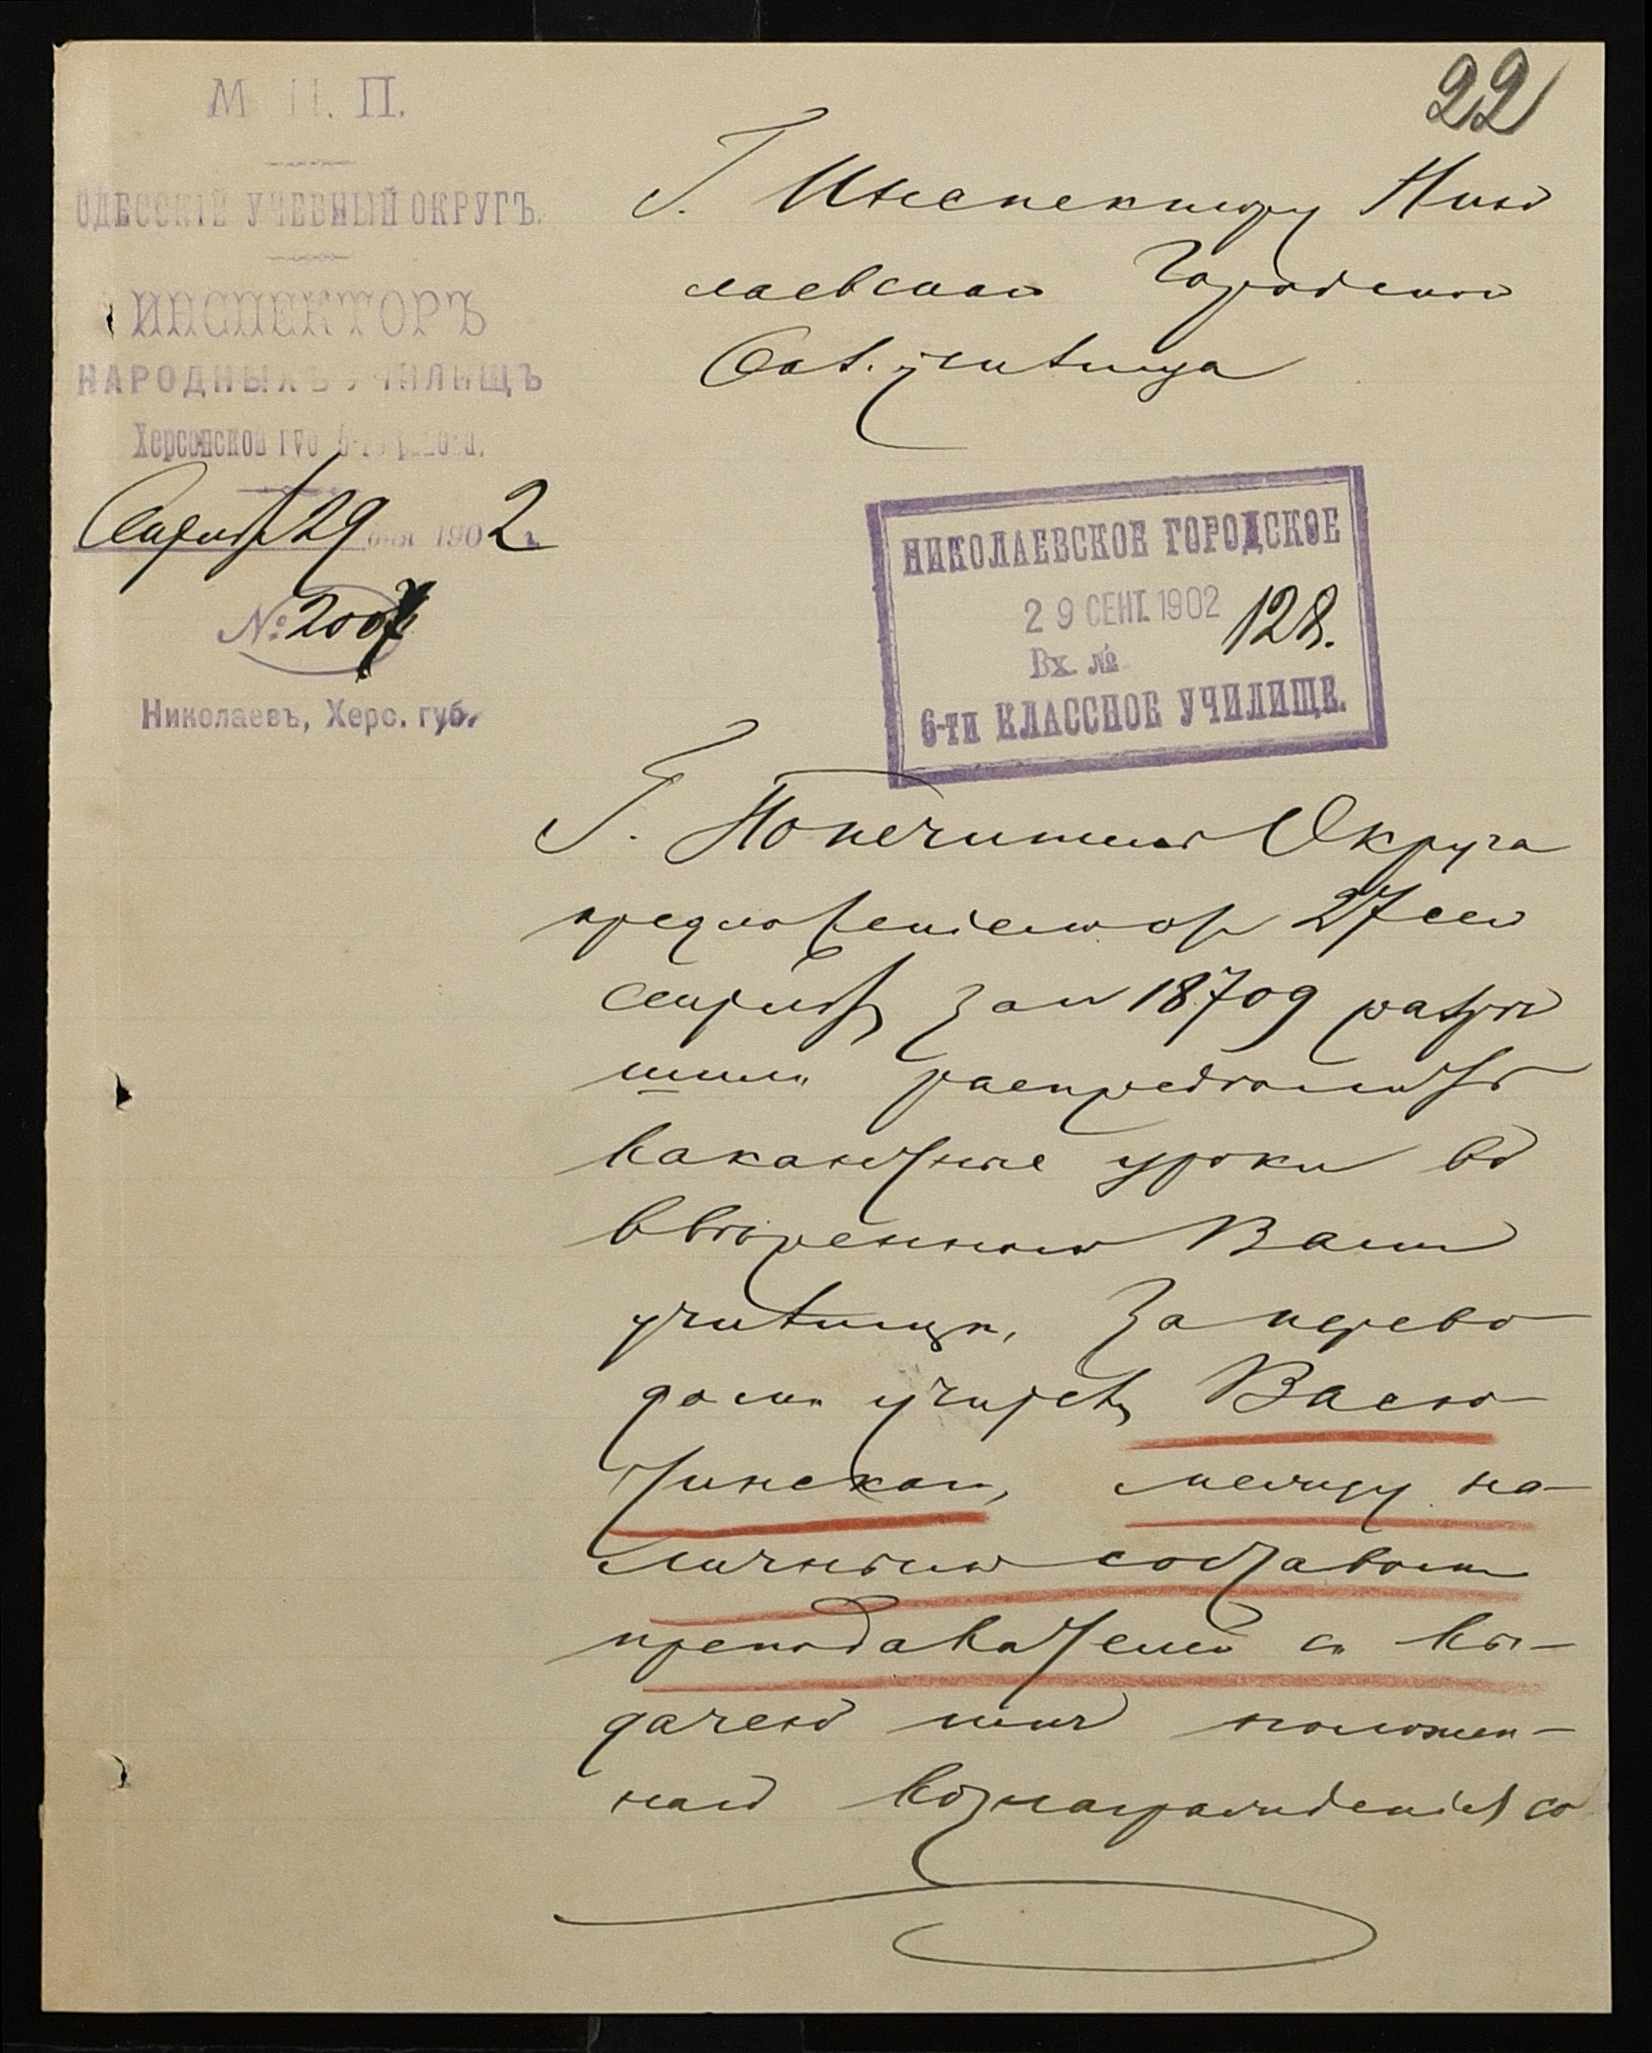 22
М. Н. П.
ОДЕССКІЙ УЧЕБНЫЙ ОКРУГЪ.
ИНСПЕКТОРЪ
НАРОДНЫХЪ УЧИЛИЩЪ
Херсонской губ. района.
Сентября 29 дня 1902 г.
№ 2007
Николаевъ, Херс. губ.
Г. Инспектору Нико
лаевскаго Городского
училища
НИКОЛАЕВСКОЕ ГОРОДСКОЕ
29 СЕНТ. 1902
Вх. № 128.
6-ти КЛАССНОЕ УЧИЛИЩЕ.
Г. Попечитель Округа
предложеніемъ отъ 27 сего
Сентября за № 18709 разрѣ
шилъ распредѣлить
вакантные уроки въ
ввѣренномъ Вамъ
училищѣ, за перево
домъ учителя Васю
тинскаго, между на-
личнымъ составомъ
преподавателей съ вы-
дачею имъ положен-
наго вознагражденія со